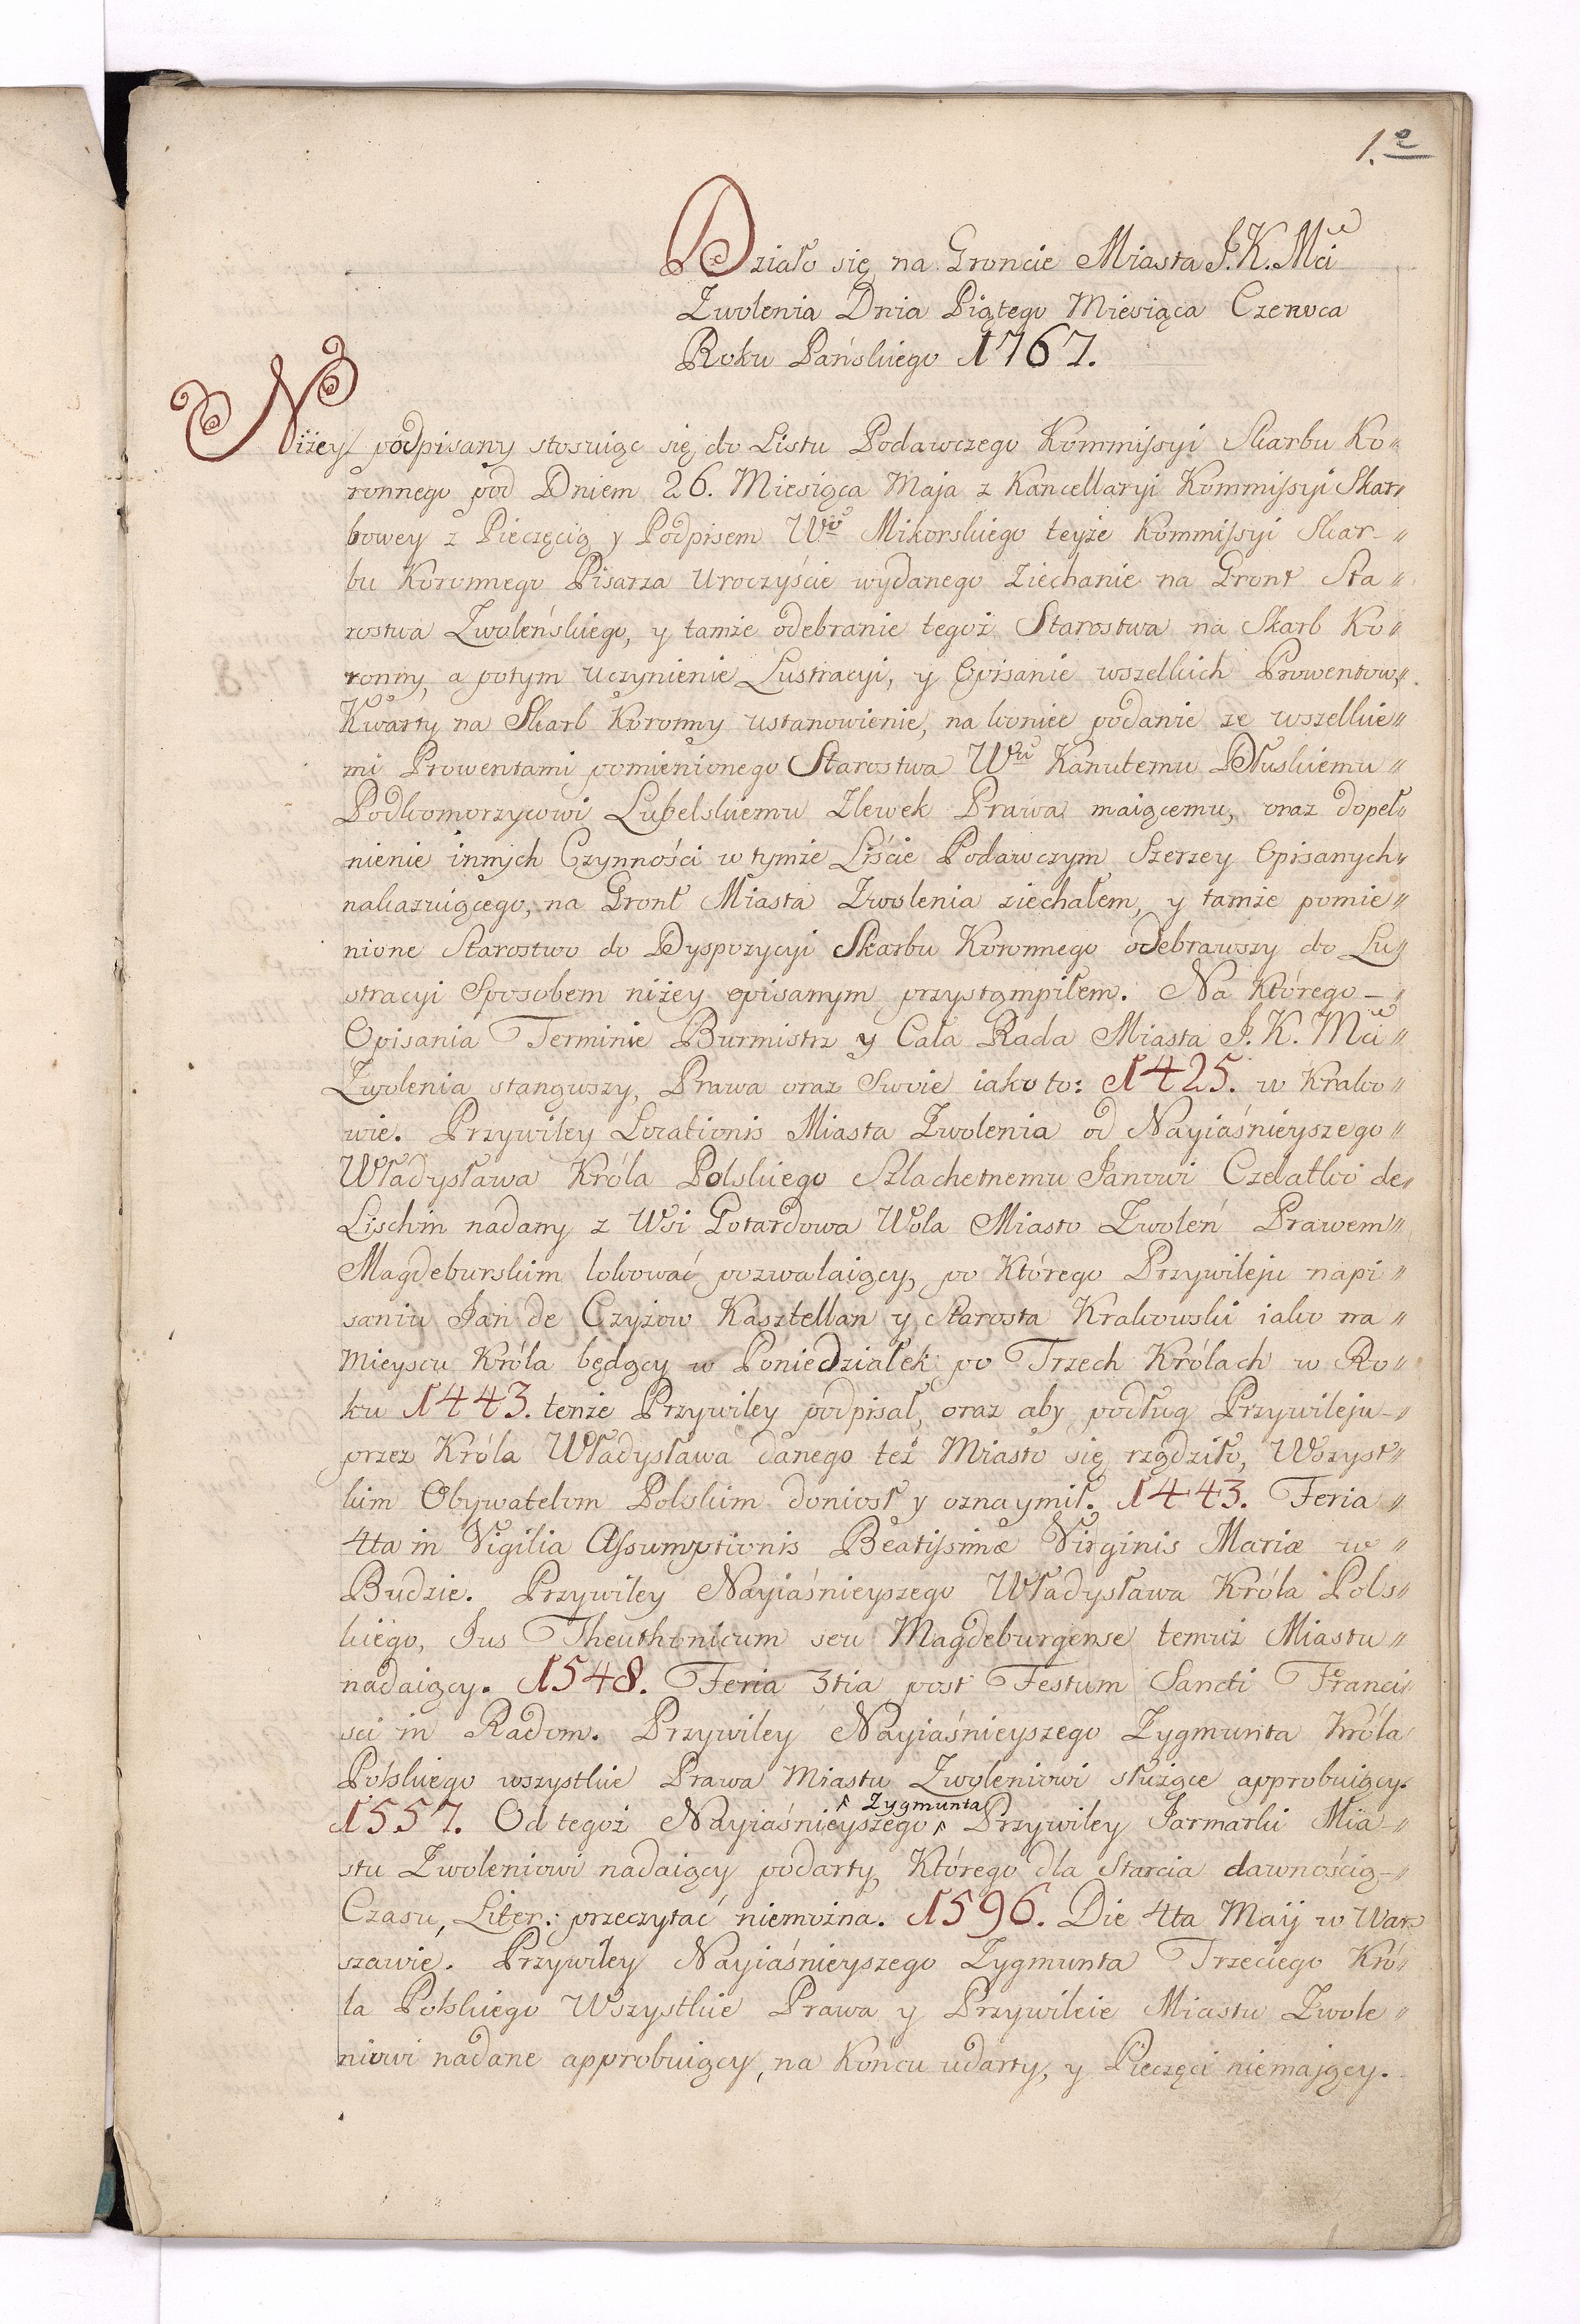 1.e
Działo się na Groncie Miasta J.K.Mci
Zwolenia Dnia Piątego Miesiąca Czerwca
Roku Pańskiego 1767.
Niżey podpisany stosuiąc się do Listu Podawczego Kommissyi Skarbu Ko„
ronnego pod Dniem 26. Miesiąca Maja z Kancellaryi Kommissyi Skar„
bowey z Pieczęcią y Podpisem Wo Mikorskiego teyże Kommissyi Skar-„
bu Koronnego Pisarza Uroczyście wydanego ziechanie na Gront Sta„
rostwa Zwoleńskiego, y tamże odebranie tegoż Starostwa na Skarb Ko„
ronny, a potym uczynienie Lustracyi, y Opisanie wszelkich Prowentow„
Kwarty na Skarb Koronny ustanowienie, na koniec podanie ze wszelkie„
mi Prowentami pomienionego Starostwa Wu Kanutemu Dłuskiemu„
Podkomorzycowi Lubelskiemu Zlewek Prawa maiącemu, oraz dopeł„
nienie innych Czynności w tymże Liście Podawczym Szerzey Opisanych„
nakazuiącego, na Gront Miasta Zwolenia ziechałem, y tamże pomie„
nione Starostwo do Dyspozycyi Skarbu Koronnego odebrawszy do Lu„
stracyi Sposobem niżey opisanym przystąmpiłem. Na którego -„
Opisania Terminie Burmistrz y Cała Rada Miasta J.K.Mci„
Zwolenia stanąwszy, Prawa oraz Swoie iako to: 1425. w Krako„
wie. Przywiley Locationis Miasta Zwolenia od Nayiaśnieyszego„
Władysława Króla Polskiego Szlachetnemu Janowi Czelatko de„
Lischin nadany z Wsi Gotardowa Wola Miasto Zwoleń Prawem„
Magdeburskim lokować pozwalaiący, po Którego Przywileju napi„
saniu Jan de Czyżow Kasztellan y Starosta Krakowski iako na„
Mieyscu Króla będący w Poniedziałek po Trzech Królach w Ro„
ku 1443. tenże Przywiley podpisał, oraz aby podług Przywileju-„
przez Króla Władysława danego też Miasto się rządziło, Wszyst„
kim Obywatelom Polskim doniosł y oznaymił. 1443. Feria„
4ta in Vigilia Assumptionis Beatissimæ Virginis Mariæ w„
Budzie. Przywiley Nayiaśnieyszego Władysława Króla Pols„
kiego, Jus Theuthonicum seu Magdeburgense temuż Miastu„
nadaiący. 1548. Feria 3tia post Festum Sancti Franci„
sci in Radom. Przywiley Nayiaśnieyszego Zygmunta Króla
Polskiego wszystkie Prawa Miastu Zwoleniowi służące approbuiący.
1557. Od tegoż Nayiaśnieyszego Zygmunta Przywiley Jarmarki Mia-„
stu Zwoleniowi nadaiący podarty, Którego dla Starcia dawnością-„
Czasu, Liter: przeczytać niemożna. 1596. Die 4ta Maÿ w War„
szawie. Przywiley Nayiaśnieyszego Zygmunta Trzeciego Kró„
la Polskiego Wszystkie Prawa y Przywileie Miastu Zwole„
niowi nadane approbuiący, na Końcu udarty, y Pieczęci niemający.